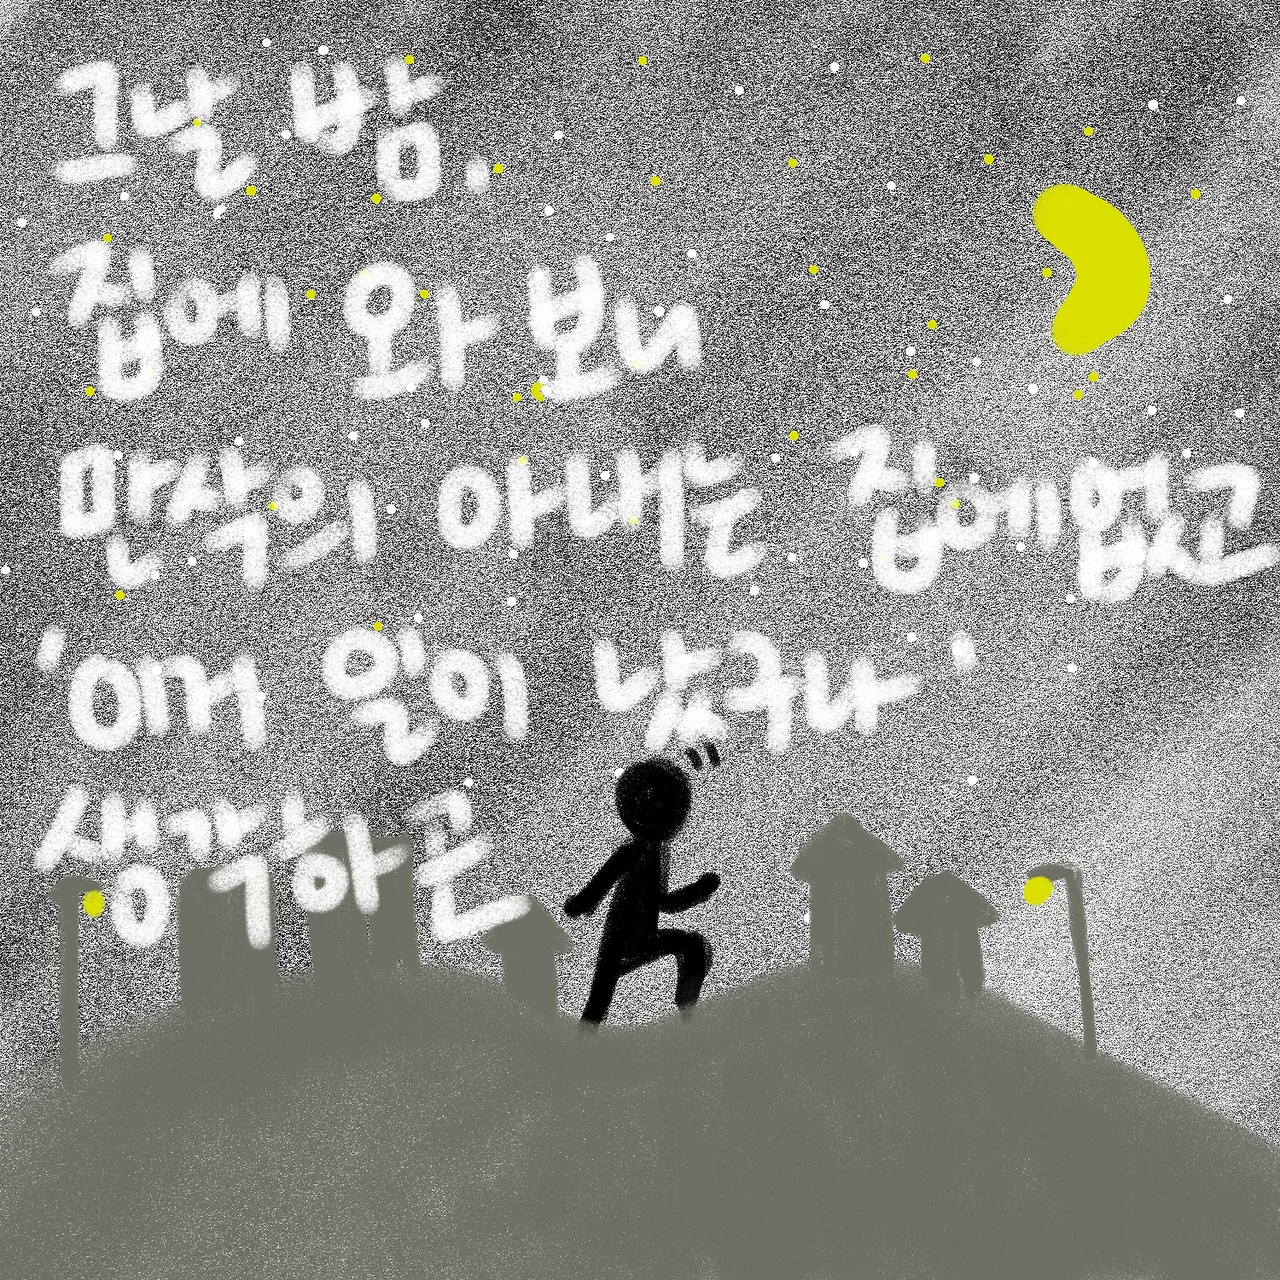 그날 밤.
집에 와 보니
만삭의 아내는 집에없고
'이거 일이 났구나'
생각하곤